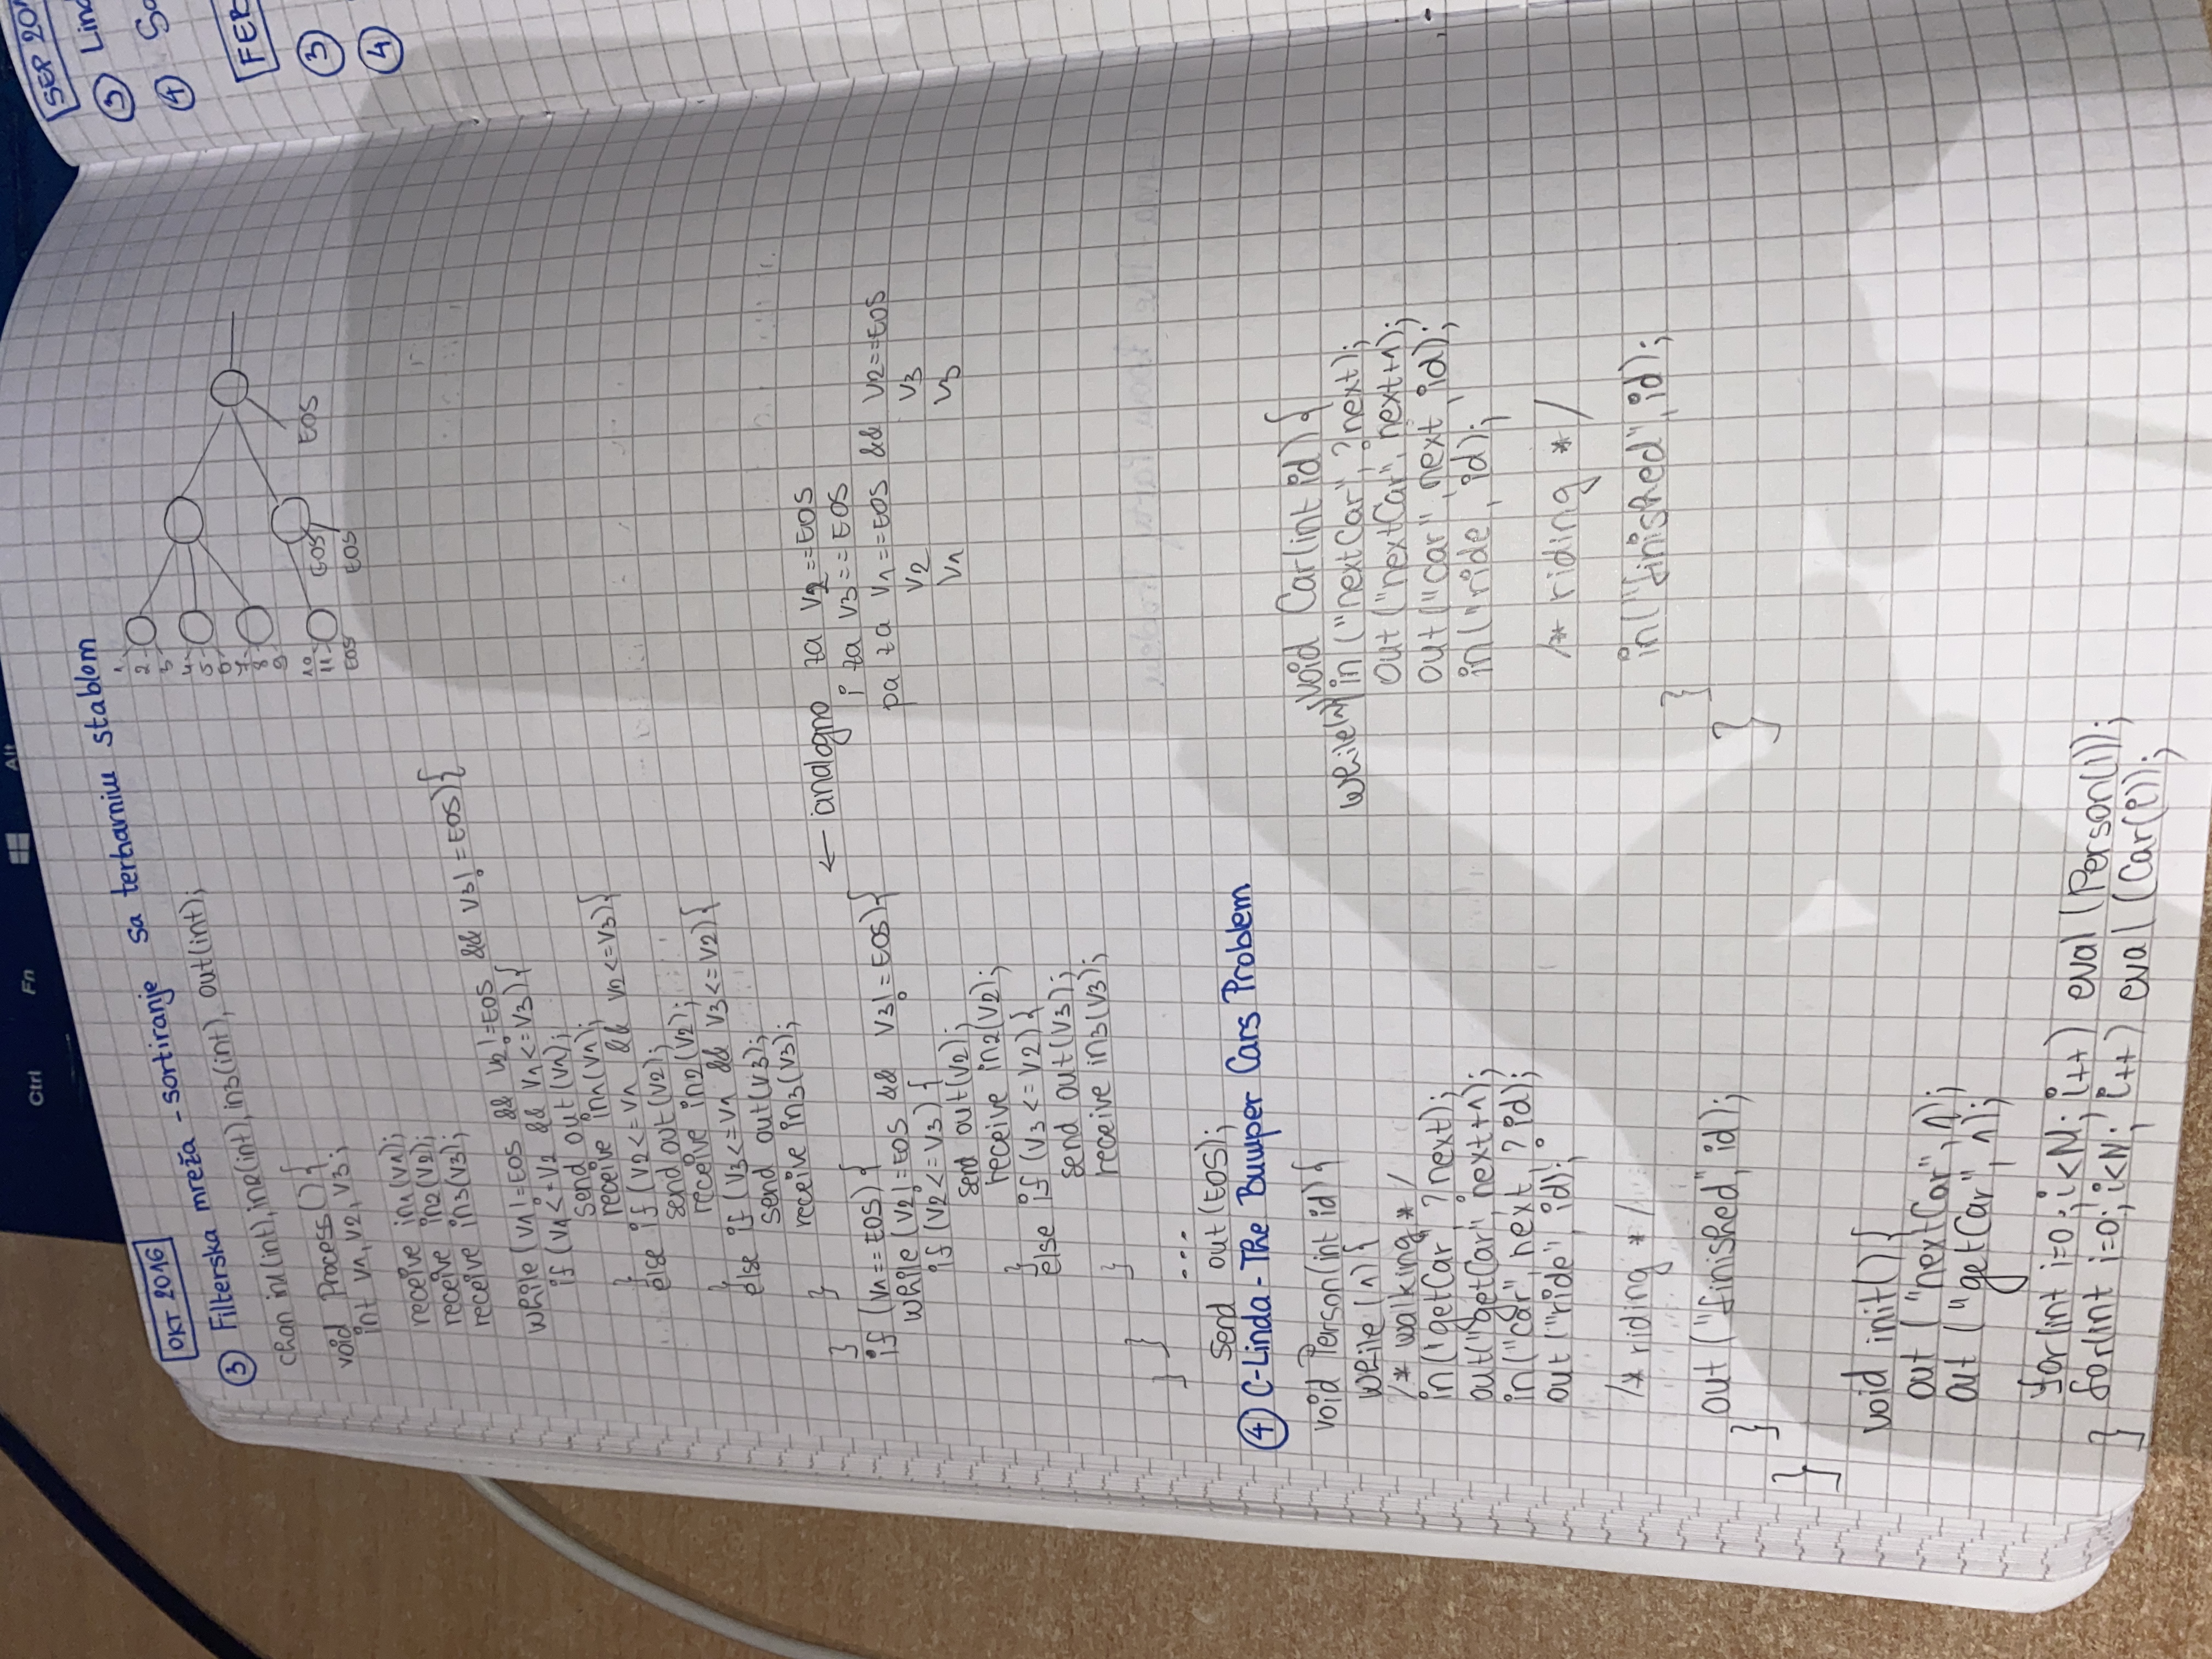 Ctrl Fn Alt
OKT 2016
③ Filterska mreža - sortiranje sa ternarnim stablom
chan in1(int), in2(int), in3(int), out(int);
void Process(){
int v1, v2, v3;
receive in1(v1);
receive in2(v2);
receive in3(v3);
while(v1!=EOS && v2!=EOS && v3!=EOS){
if(v1<=v2 && v1<=v3){
send out(v1);
receive in1(v1);
}
else if(v2<=v1 && v2<=v3){
send out(v2);
receive in2(v2);
}
else if(v3<=v1 && v3<=v2){
send out(v3);
receive in3(v3);
}
}
if(v1==EOS){
while(v2!=EOS && v3!=EOS){
if(v2<=v3){
send out(v2);
receive in2(v2);
}
else if(v3<=v2){
send out(v3);
receive in3(v3);
}
}
}
...
send out(EOS);
1
2
3
4
5
6
7
8
9
10
11
EOS
EOS
EOS
EOS
← analogno za v2==EOS
i za v3==EOS
pa za v1==EOS && v2==EOS
v2 v3
v1 v3
④ C-Linda - The Bumper Cars Problem
void Person(int id){
while(1){
/* walking */
in("getCar", ?next);
out("getCar", next+1);
in("car", next, ?id);
out("ride", id);
/* riding */
out("finished", id);
}
}
void Car(int id){
while(1){
in("nextCar", ?next);
out("nextCar", next+1);
out("car", next, id);
in("ride, id);
/* riding */
in("finished", id);
}
}
void init(){
out("nextCar", 1);
out("getCar", 1);
for(int i=0; i<M; i++) eval(Person(i));
for(int i=0; i<N; i++) eval(Car(i));
}
SEP 20
③ Lind
④
FEB
③
④